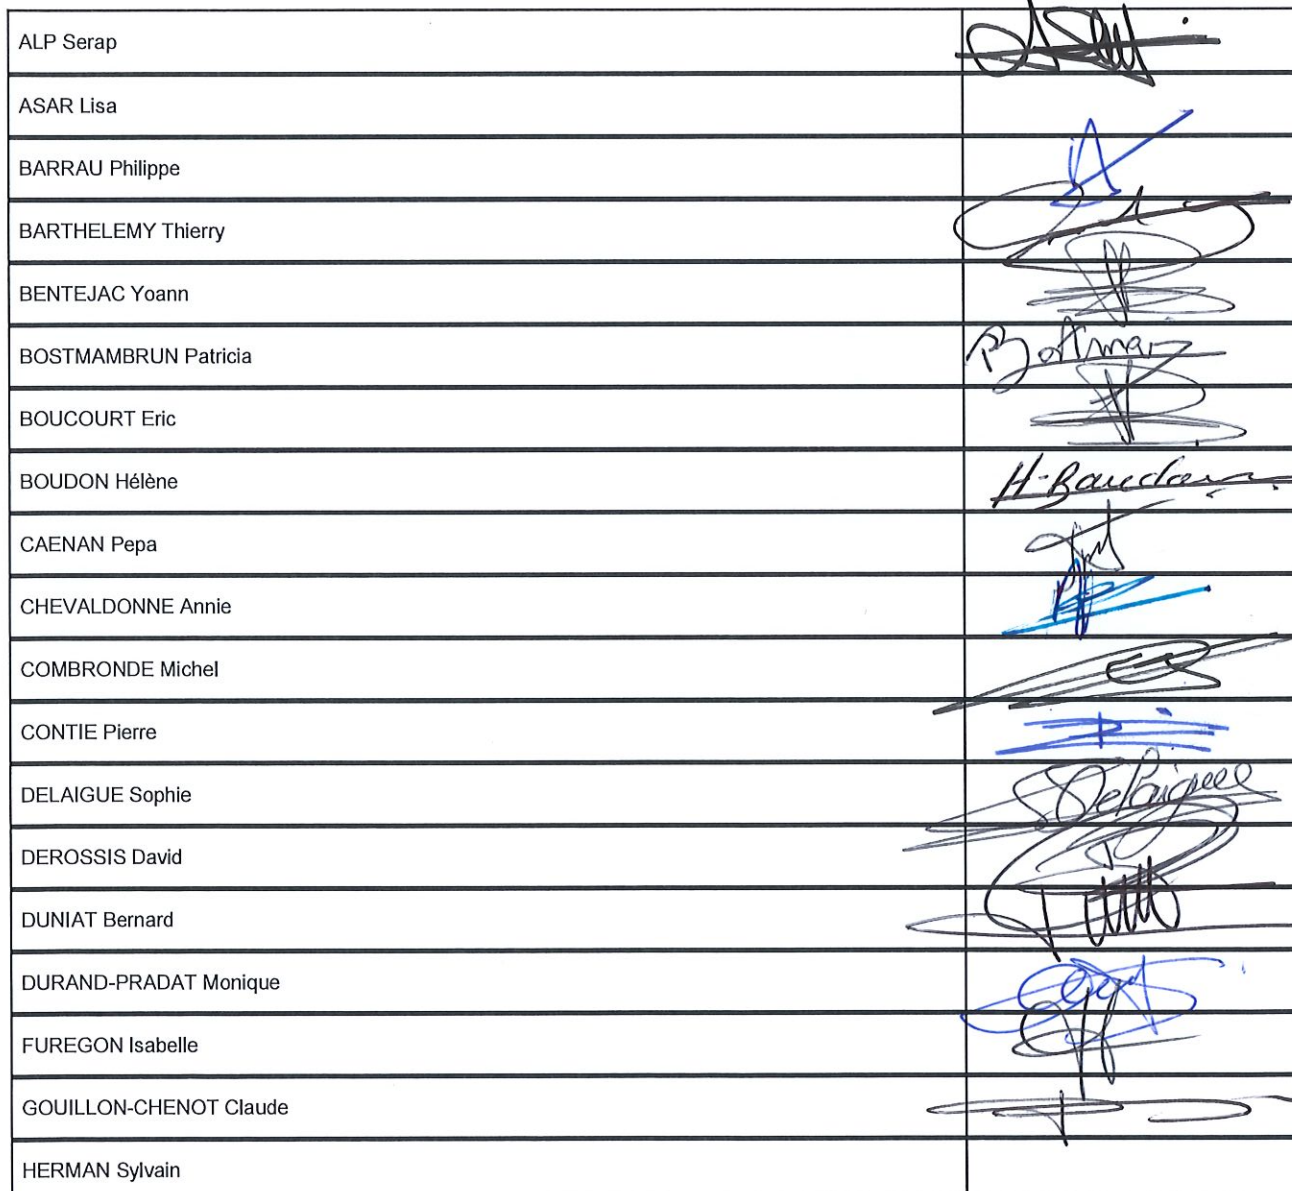 ALP Serap
ASAR Lisa
BARRAU Philippe
BARTHELEMY Thierry
BENTEJAC Yoann
BOSTMAMBRUN Patricia
BOUCOURT Eric
BOUDON Hélène H. Boudon
CAENAN Pepa
CHEVALDONNE Annie
COMBRONDE Michel
CONTIE Pierre
DELAIGUE Sophie Delaigue
DEROSSIS David
DUNIAT Bernard
DURAND-PRADAT Monique
FUREGON Isabelle
GOUILLON-CHENOT Claude
HERMAN Sylvain